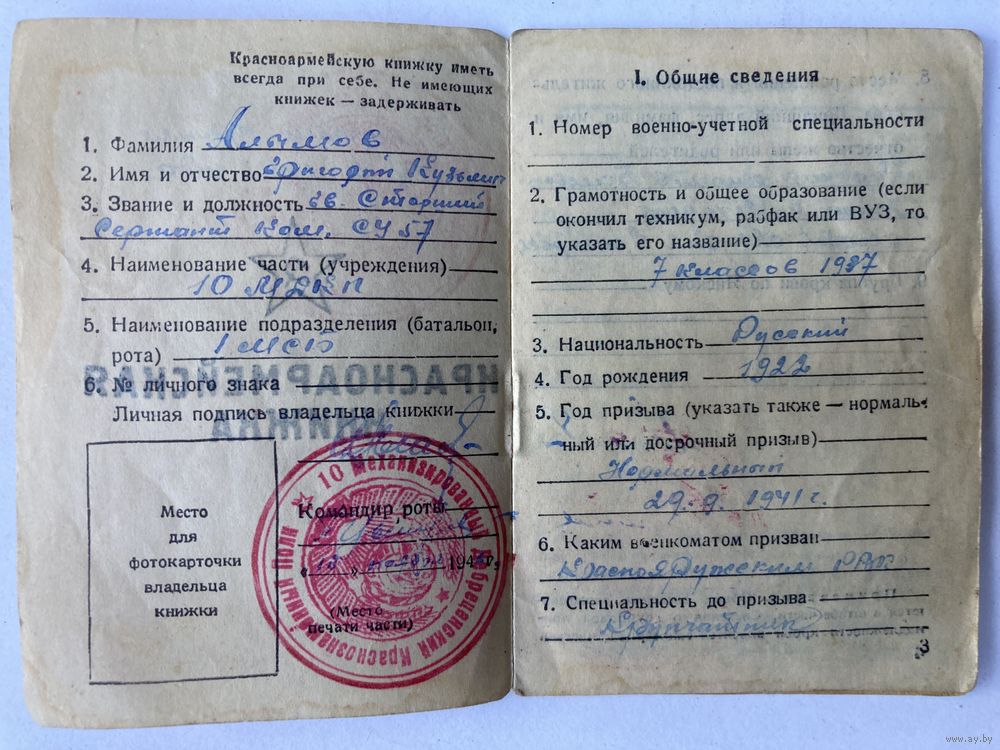 Красноармейскую книжку иметь
всегда при себе. Не имеющих
книжек — задерживать
1. Фамилия Алымов
2. Имя и отчество Кузьмич
3. Звание и должность гв. Старший
Сержант Ком. СУ 57
4. Наименование части (учреждения)
10 МДКП
5. Наименование подразделения (батальон,
рота) 1 МСБ
6. № личного знака
Личная подпись владельца книжки
КРАСНОАРМЕЙСКАЯ
КНИЖКА
Место
для
фотокарточки
владельца
книжки
Командир роты
194
(Место
печати части)
10 Механизированный Дебреценский Краснознаменный Полк
I. Общие сведения
1. Номер военно-учетной специальности
2. Грамотность и общее образование (если
окончил техникум, рабфак или ВУЗ, то
указать его название)
7 классов 1937
3. Национальность Русский
4. Год рождения 1922
5. Год призыва (указать также — нормаль-
ный или досрочный призыв)
Нормальный
29. 9. 1941 г.
6. Каким военкоматом призван
Краснояружским РВК
7. Специальность до призыва
3
www.ay.by